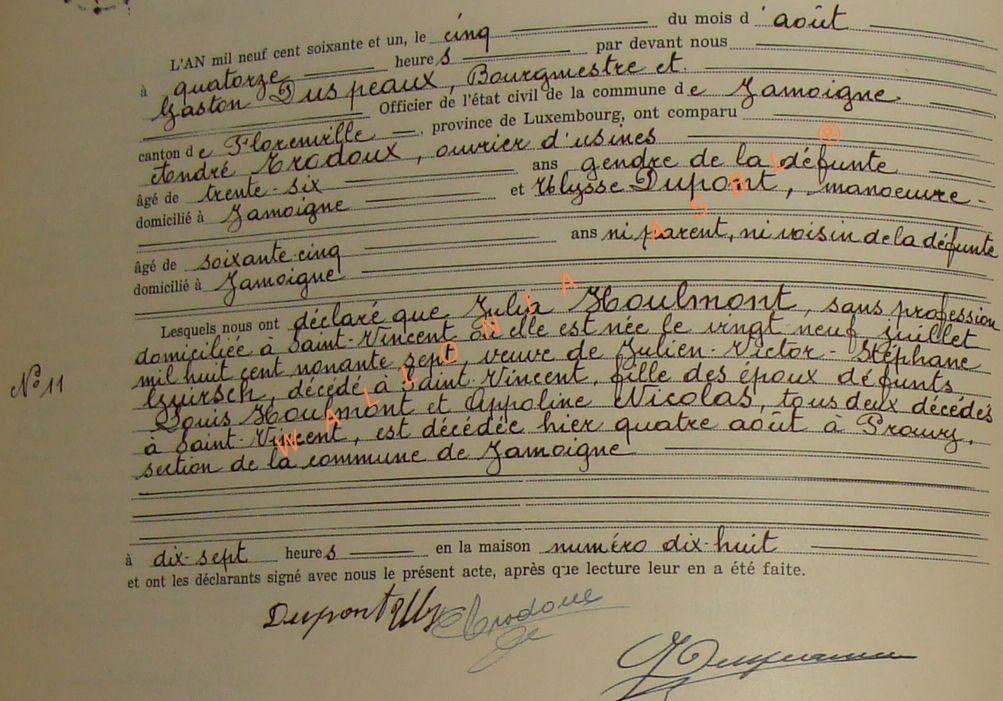 L'AN mil neuf cent soixante et un, le cinq du mois d'août
à quatorze heures par devant nous
Gaston Duspeaux, Bourgmestre et
Officier de l'état civil de la commune de Jamoigne
canton de Florenville, province de Luxembourg, ont comparu
André Trodoux, ouvrier d'usines
âgé de trente-six ans gendre de la défunte
domicilié à Jamoigne et Ulysse Dupont, manoeuvre-
âgé de soixante-cinq ans ni parent, ni voisin de la défunte
domicilié à Jamoigne
Lesquels nous ont déclaré que Julia Houlmont, sans profession
domiciliée à Saint-Vincent où elle est née le vingt neuf juillet
N° 11
mil huit cent nonante sept, veuve de Julien-Victor-Stéphane
Guirsch, décédé à Saint-Vincent, fille des époux défunts
Louis Houlmont et Appoline Nicolas, tous deux décédés
à Saint-Vincent, est décédée hier quatre août à Prouvy,
section de la commune de Jamoigne
à dix-sept heures en la maison numéro dix-huit
et ont les déclarants signé avec nous le présent acte, après que lecture leur en a été faite.
Dupont Uly
WALLONIA ASBL @